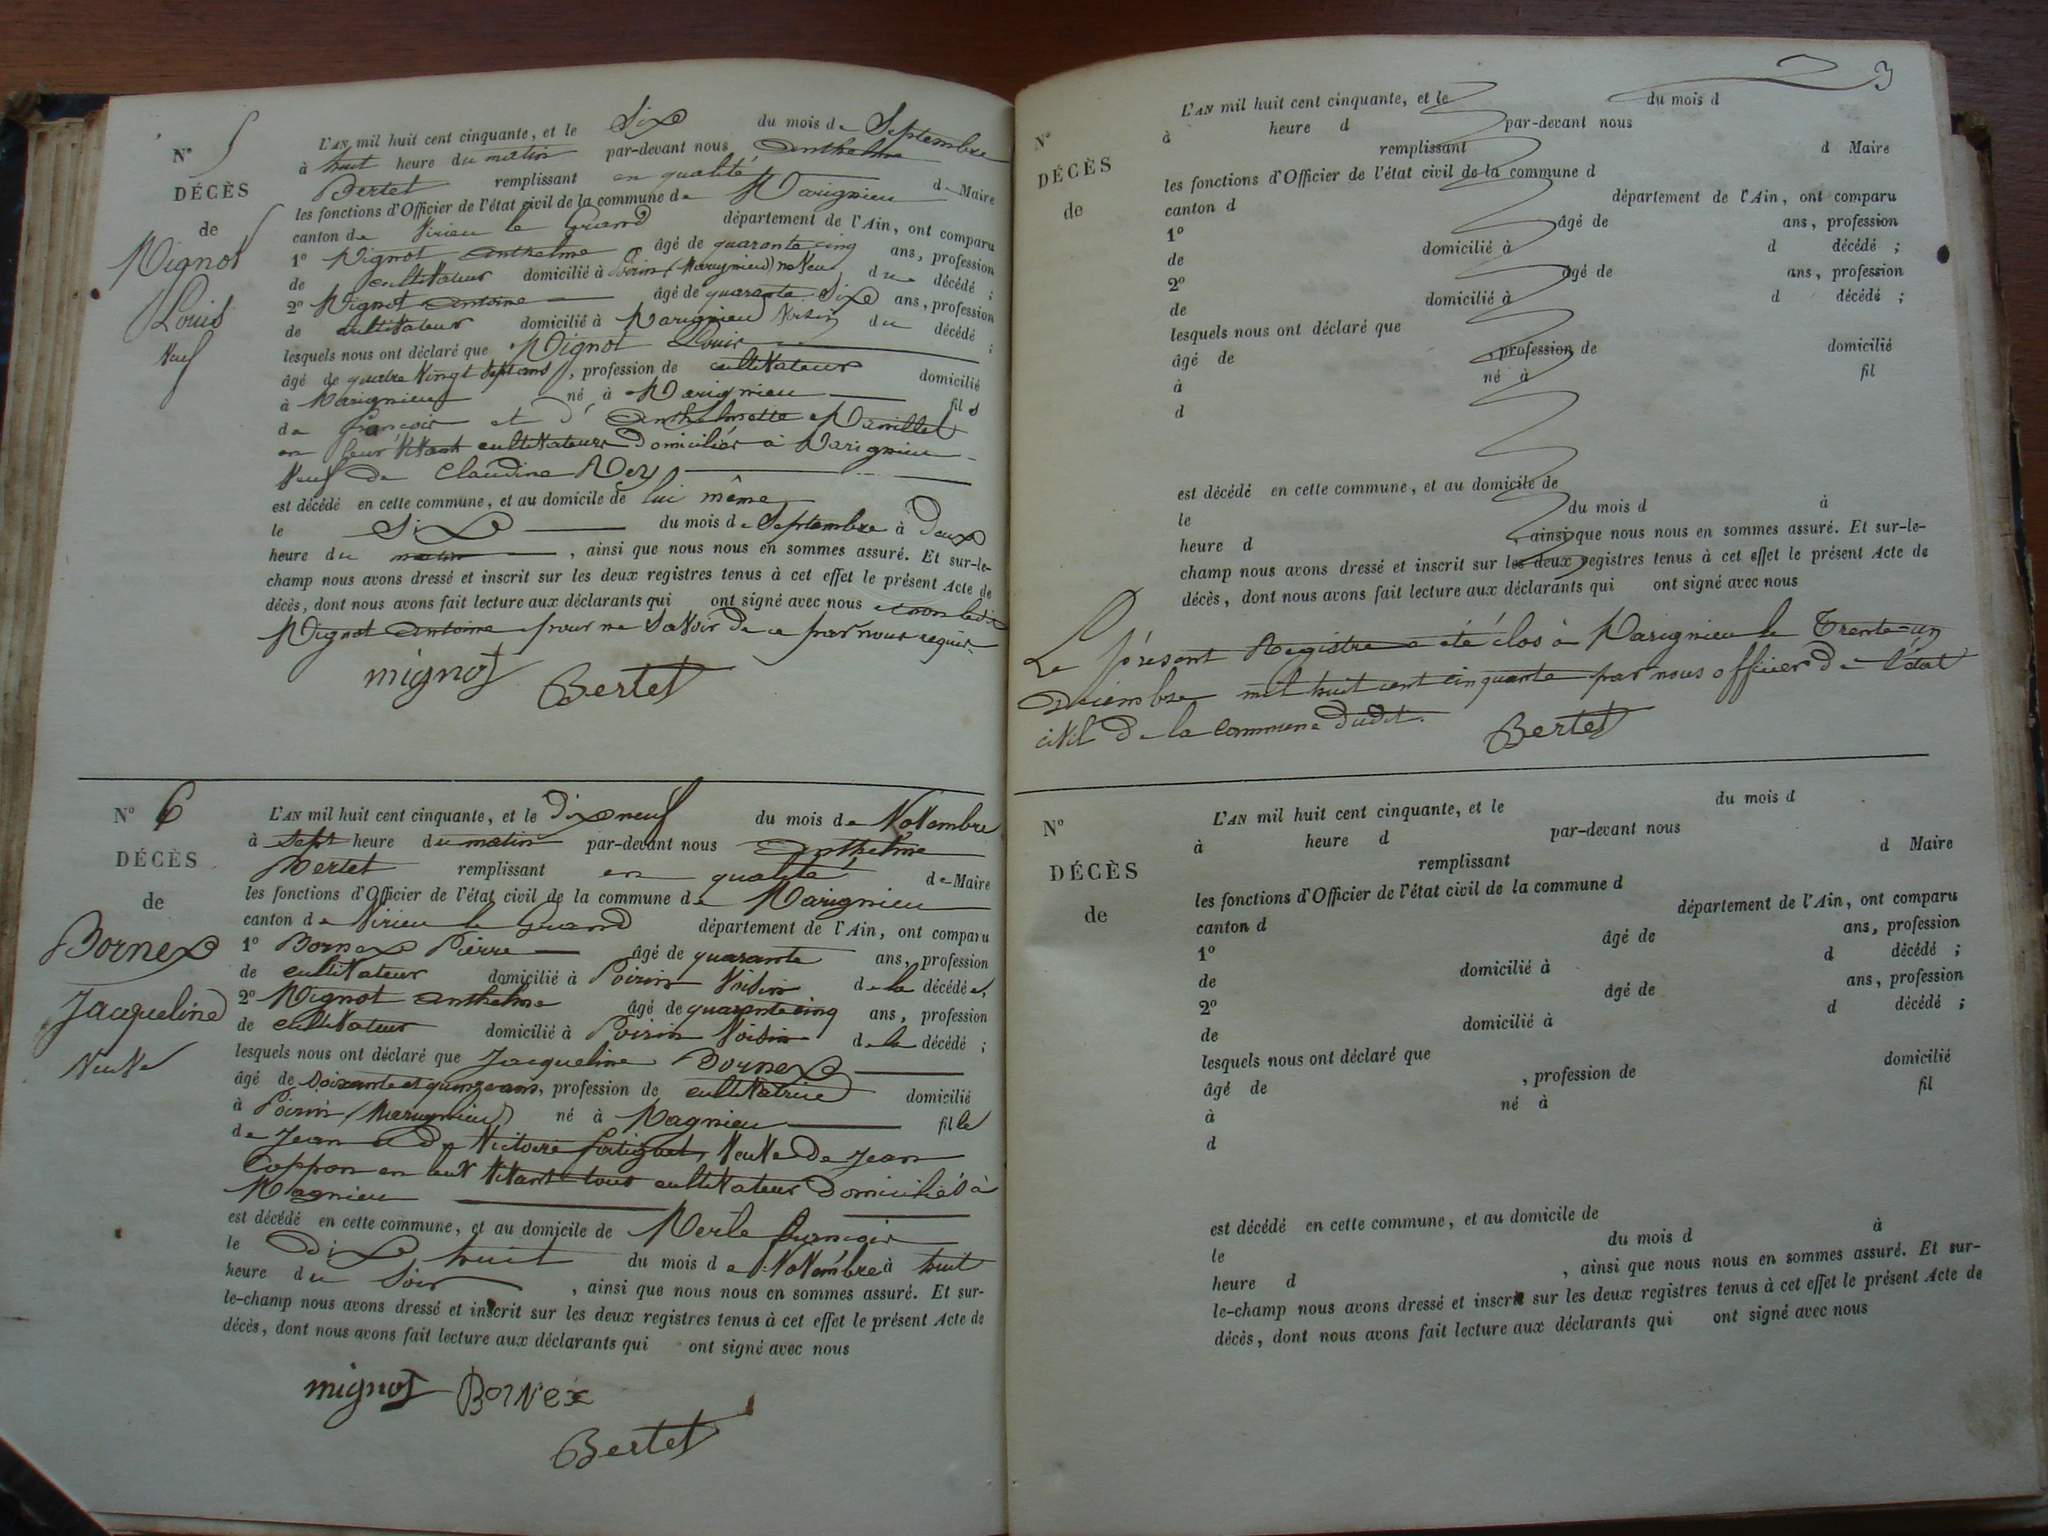 N° 5
DÉCÈS
de
Mignot
Louis
Veuf
L'AN mil huit cent cinquante, et le Sixe du mois de Septembre
à huit heure du matin par-devant nous Anthelme
Bertet remplissant en qualité de Maire
les fonctions d'Officier de l'état civil de la commune de Marignieu
canton de Virieu le Grand département de l'Ain, ont comparu
1° Mignot Anthelme âgé de quarante cinq ans, profession
de cultivateur domicilié à Poirin (Marignieu) neveu du décédé ;
2° Mignot Antoine âgé de quarante Sixe ans, profession
de cultivateur domicilié à Marignieu voisin du décédé ;
lesquels nous ont déclaré que Mignot Louis
âgé de quatre vingt sept ans, profession de cultivateur domicilié
à Marignieu né à Marignieu fils
de François et d'Anthelmette Mamillet
en leur vivant cultivateurs domiciliés à Marignieu
Veuf de Claudine Rey
est décédé en cette commune, et au domicile de lui même
le Sixe du mois de Septembre à Deux
heure du matin, ainsi que nous nous en sommes assuré. Et sur-le-
champ nous avons dressé et inscrit sur les deux registres tenus à cet effet le présent Acte de
décès, dont nous avons fait lecture aux déclarants qui ont signé avec nous non ledit
Mignot Antoine pour ne savoir de ce par nous requis
mignot Bertet
N° 6
DÉCÈS
de
Bornex
Jacqueline
Veuve
L'AN mil huit cent cinquante, et le dixeneuf du mois de Novembre
à sept heure du matin par-devant nous Anthelme
Bertet remplissant en qualité de Maire
les fonctions d'Officier de l'état civil de la commune de Marignieu
canton de Virieu le Grand département de l'Ain, ont comparu
1° Bornex Pierre âgé de quarante ans, profession
de cultivateur domicilié à Poirin voisin de la décédée,
2° Mignot Anthelme âgé de quarante cinq ans, profession
de cultivateur domicilié à Poirin voisin de la décédé ;
lesquels nous ont déclaré que Jacqueline Bornex
âgé de Soixante et quinze ans, profession de cultivatrice domicilié
à Poirin (Marignieu) né à Magnieu fille
de Jean et de Victoire veuve de Jean
Coppon en leur vivant tous cultivateur domiciliés à
Magnieu
est décédé en cette commune, et au domicile de Merle François
le Dixe huit du mois de Novembre à huit
heure du Soir, ainsi que nous nous en sommes assuré. Et sur-
le-champ nous avons dressé et inscrit sur les deux registres tenus à cet effet le présent Acte de
décès, dont nous avons fait lecture aux déclarants qui ont signé avec nous
mignot Bornex
Bertet
3
N°
DÉCÈS
de
L'AN mil huit cent cinquante, et le du mois d
à heure d par-devant nous
remplissant d Maire
les fonctions d'Officier de l'état civil de la commune d
canton d département de l'Ain, ont comparu
1° âgé de ans, profession
de domicilié à d décédé ;
2° âgé de ans, profession
de domicilié à d décédé ;
lesquels nous ont déclaré que
âgé de , profession de domicilié
à né à fil
d
est décédé en cette commune, et au domicile de
le du mois d à
heure d , ainsi que nous nous en sommes assuré. Et sur-le-
champ nous avons dressé et inscrit sur les deux registres tenus à cet effet le présent Acte de
décès, dont nous avons fait lecture aux déclarants qui ont signé avec nous
Le présent Registre a été clos à Marignieu le Trente-un
Décembre mil huit cent cinquante par nous officier de l'état
civil de la commune dudit.
Bertet
N°
DÉCÈS
de
L'AN mil huit cent cinquante, et le du mois d
à heure d par-devant nous
remplissant d Maire
les fonctions d'Officier de l'état civil de la commune d
canton d département de l'Ain, ont comparu
1° âgé de ans, profession
de domicilié à d décédé ;
2° âgé de ans, profession
de domicilié à d décédé ;
lesquels nous ont déclaré que
âgé de , profession de domicilié
à né à fil
d
est décédé en cette commune, et au domicile de
le du mois d à
heure d , ainsi que nous nous en sommes assuré. Et sur-
le-champ nous avons dressé et inscrit sur les deux registres tenus à cet effet le présent Acte de
décès, dont nous avons fait lecture aux déclarants qui ont signé avec nous